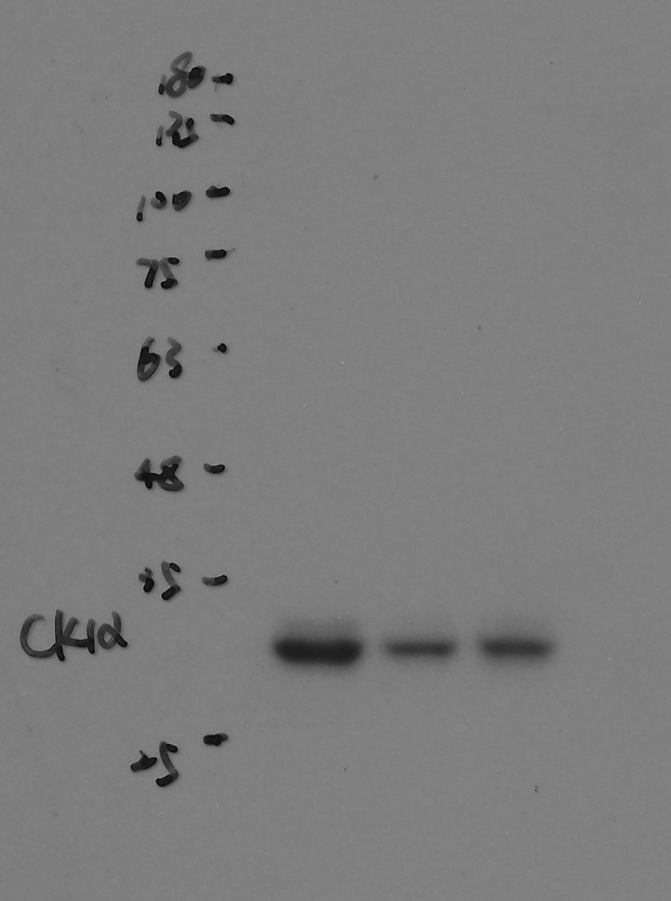 180
135
100
75
63
48
35
CK1α
25